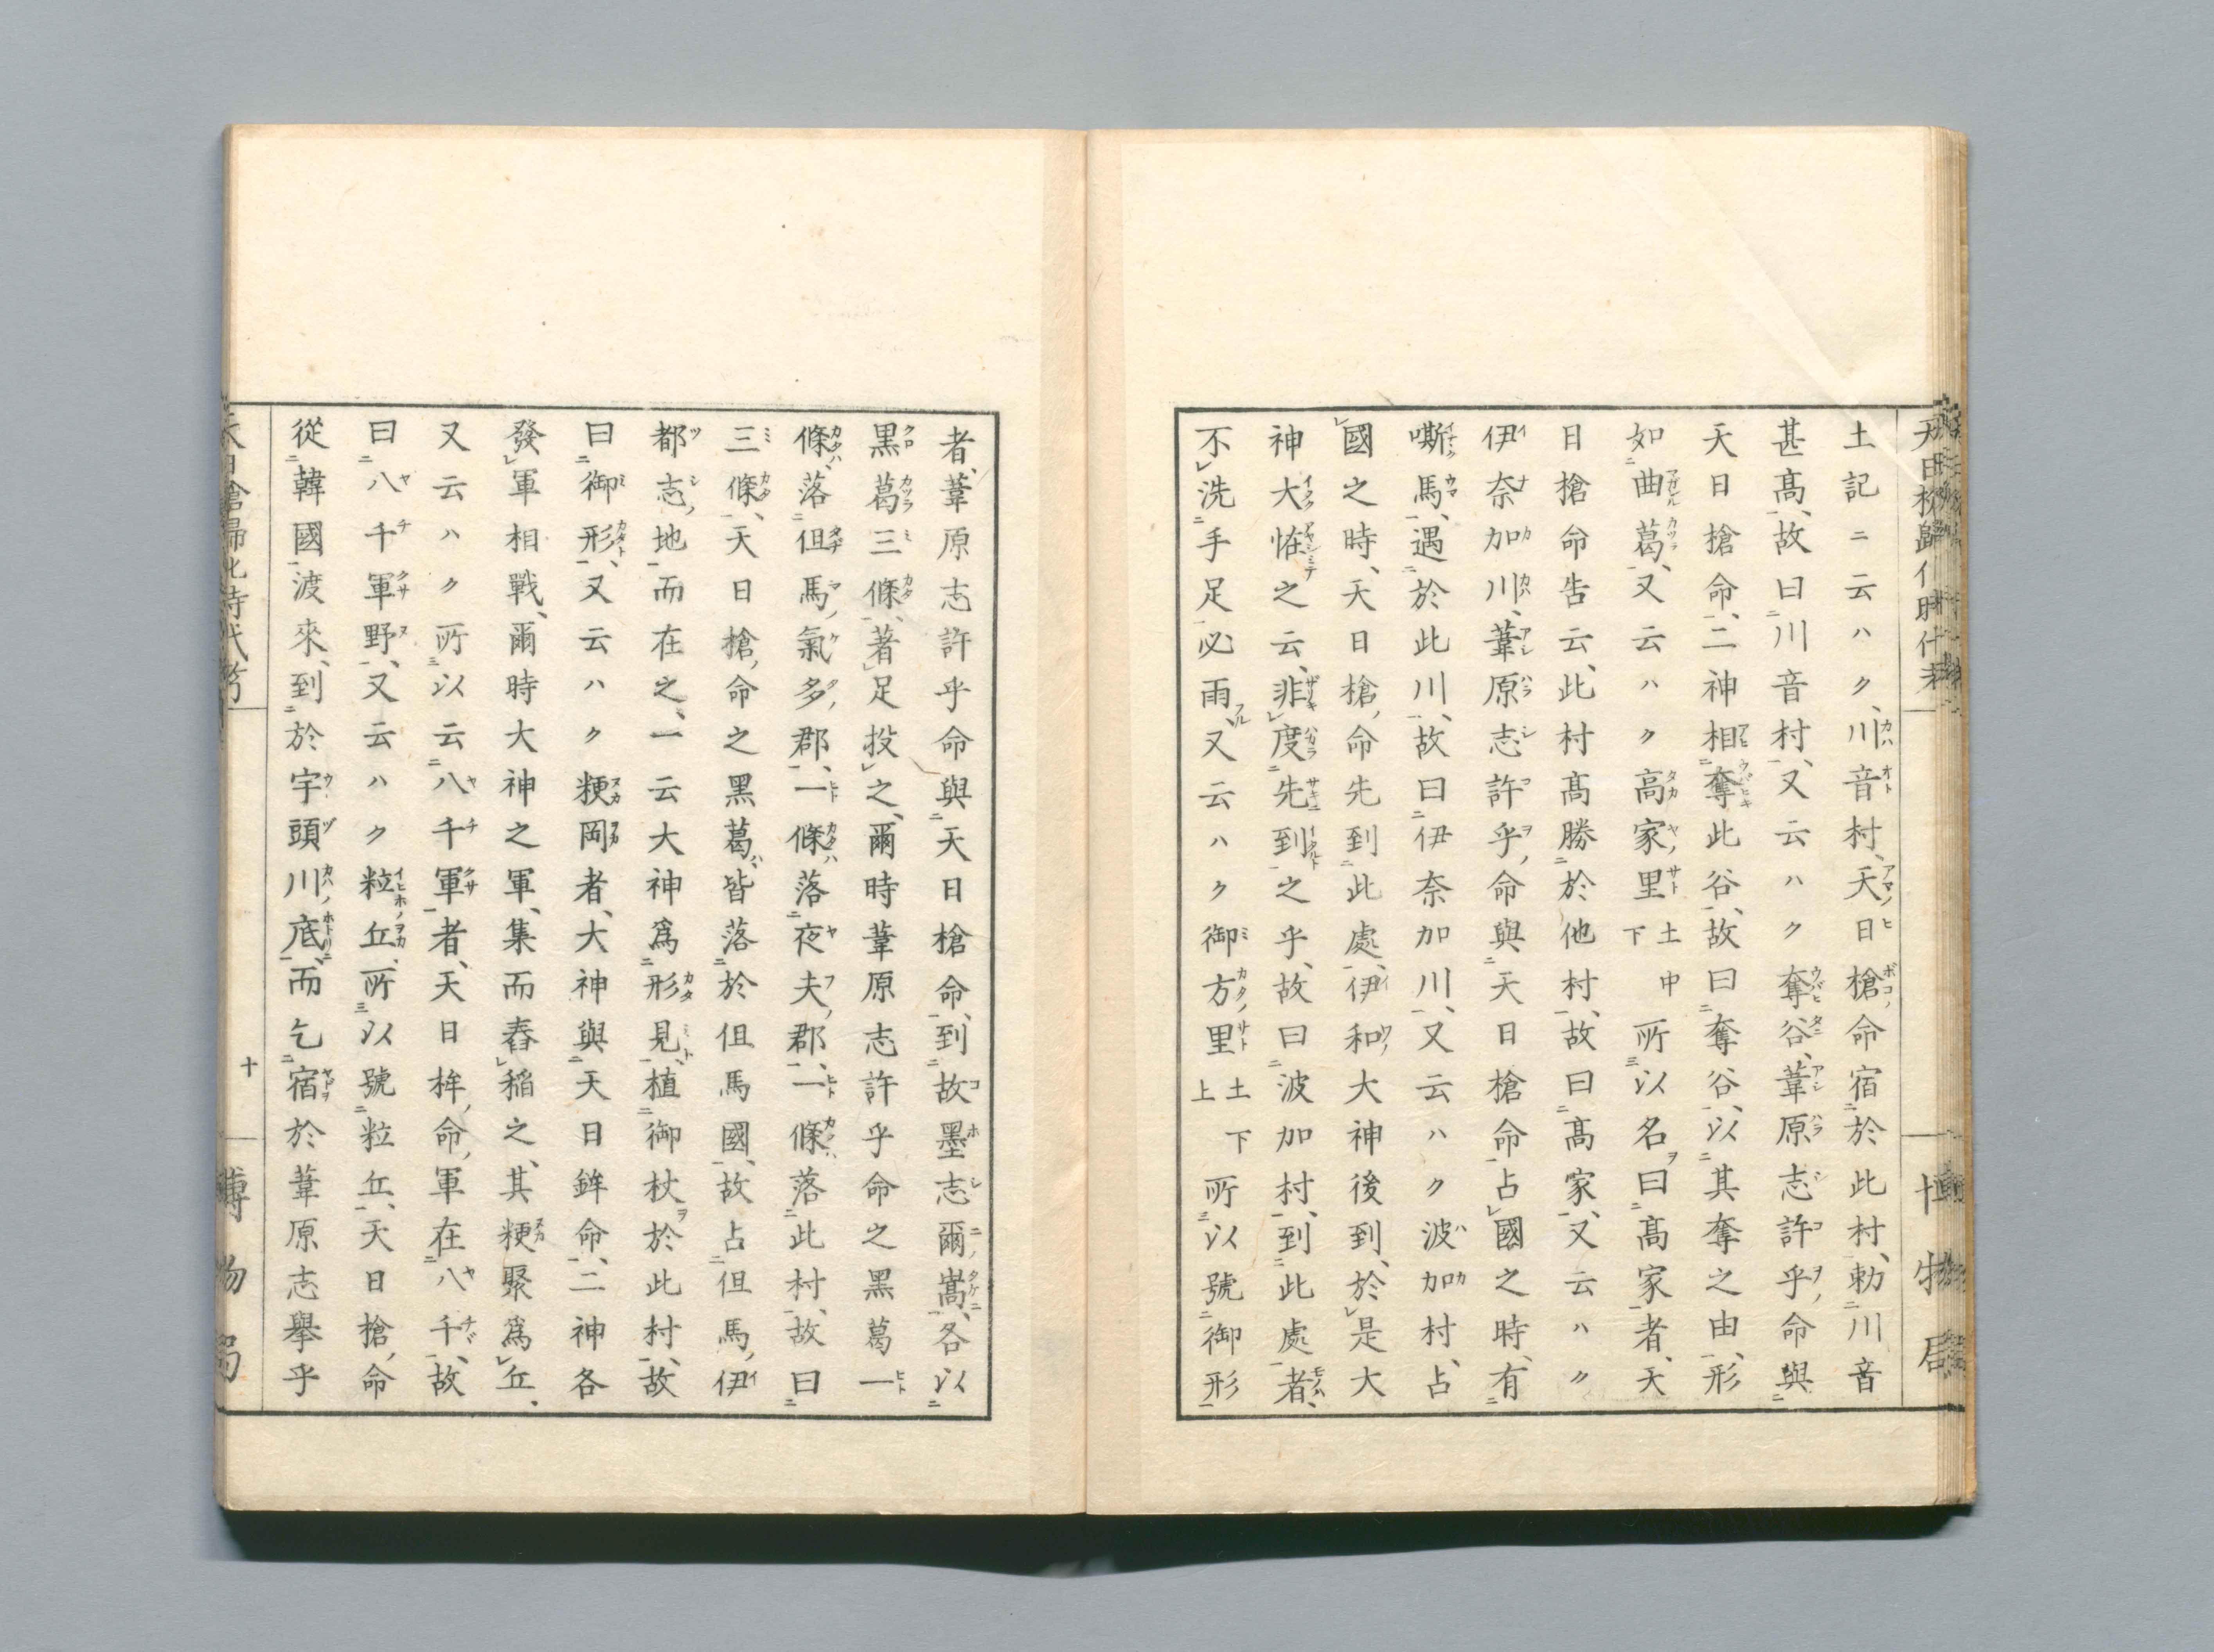 土記ニ云ハク、川音村、天日槍命宿於此村、勅川音
甚髙、故曰川音村、又云ハク奪谷、葦原志許乎命與
天日槍命、二神相奪此谷、故曰奪谷、以其奪之由、形
如曲葛、又云ハク高家里土中下所以名曰髙家者、天
日槍命告云、此村髙勝於他村、故曰髙家、又云ハク
伊奈加川、葦原志許乎命與天日槍命占國之時、有
嘶馬、遇於此川、故曰伊奈加川、又云ハク波加村、占
國之時、天日槍命先到此處、伊和大神後到、於是大
神大恠之云、非度先到之乎、故曰波加村、到此處者、
不洗手足必雨、又云ハク御方里土下上所以號御形
者、葦原志許乎命與天日槍命、到故墨志爾嵩、各以
黒葛三條、著足投之、爾時葦原志許乎命之黒葛一
條落但馬氣多郡、一條落夜夫郡、一條落此村、故曰
三條、天日槍命之黒葛皆落於但馬國、故占但馬伊
都志地而在之、一云大神爲形見、植御杖於此村、故
曰御形、又云ハク粳岡者、大神與天日鉾命、二神各
發軍相戰、爾時大神之軍、集而舂稲之、其粳聚爲丘、
又云ハク所以云八千軍者、天日桙命軍在八千、故
曰八千軍野、又云ハク粒丘、所以號粒丘、天日槍命
從韓國渡來、到於宇頭川底、而乞宿於葦原志擧乎
天日槍歸化時代考
十
博物局